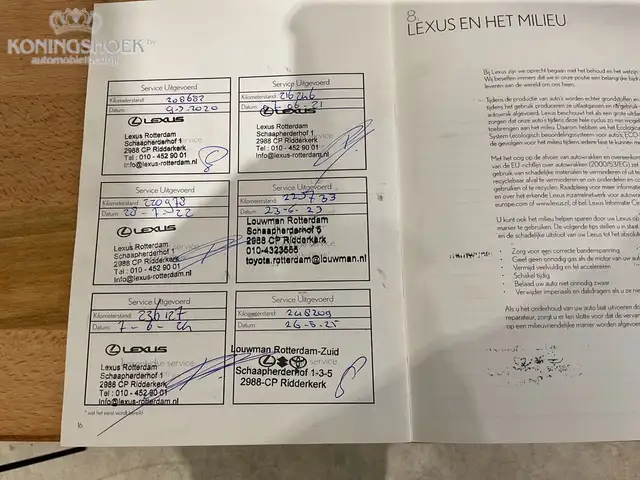 KONINGSHOEK BV
automobielbedrijf
Service Uitgevoerd
Kilometerstand 208682
Datum 9-3-2020
LEXUS
Lexus Rotterdam
Schaapherderhof 1
2988 CP Ridderkerk
Tel : 010 - 452 90 01
Info@lexus-rotterdam.nl
Service Uitgevoerd
Kilometerstand
Datum
LEXUS
Lexus Rotterdam
Schaapherderhof 1
2988 CP Ridderkerk
Tel : 010 - 452 90 01
Info@lexus-rotterdam.nl
Service Uitgevoerd
Kilometerstand 220978
Datum 20-7-22
LEXUS
Lexus Rotterdam
Schaapherderhof 1
2988 CP Ridderkerk
Tel : 010 - 452 90 01
Info@lexus-rotterdam.nl
Service Uitgevoerd
Kilometerstand
Datum 23-6-23
Louwman Rotterdam
Schaapherderhof
2988 CP Ridderkerk
010-4323555
toyota.rotterdam@louwman.nl
Service Uitgevoerd
Kilometerstand 236127
Datum 7-6-24
LEXUS
service
Lexus Rotterdam
Schaapherderhof 1
2988 CP Ridderkerk
Tel : 010 - 452 90 01
Info@lexus-rotterdam.nl
Service Uitgevoerd
Kilometerstand 248209
Datum 26-5-25
Louwman Rotterdam-Zuid
service
Schaapherderhof 1-3-5
2988-CP Ridderkerk
* wat het eerst wordt bereikt
16
8.
LEXUS EN HET MILIEU
Bij Lexus zijn we oprecht begaan met het behoud en het welzijn
Wij beseffen immers dat we in onze positie een belangrijke bijdra
leveren aan de wereld om ons heen.
Tijdens de productie van auto's worden echter grondstoffen e
tijdens het gebruik produceren ze uitlaatgassen en
autowrak afgevoerd. Lexus beschouwt het als een grote uitda
zorgen dat onze auto's tijdens deze hele cyclus zo min mogelijk
toebrengen aan het milieu. Daarom hebben we het Ecologic
System (ecologisch beoordelingssysteem voor auto's, ECO
de gevolgen voor het milieu tijdens iedere fase te kunnen me
Met het oog op de afvoer van autowrakken en overeenkom
van de EU-richtlijn over autowrakken (2000/53/EG) ze
gebruik van schadelijke materialen te verminderen of te
recyclebaar afval te verminderen en om onderdelen en co
gebruiken of te recyclen. Raadpleeg voor meer informatie
en over het erkende Lexus inzamelnetwerk voor autowra
europe.com of www.lexus.nl, of bel: Lexus Informatie Ce
U kunt ook het milieu helpen sparen door uw Lexus
manier te gebruiken. De volgende tips stellen u in staat
en de schadelijke uitstoot van uw Lexus tot het absolu
Zorg voor een correcte bandenspanning
Geef geen onnodig gas als de motor van uw aut
Vermijd veelvuldig en fel accelereren
Schakel tijdig
Belaad uw auto niet onnodig zwaar
Verwijder imperiaals en dakdragers als u ze nie
Als u het onderhoud van uw auto laat uitvoeren do
reparateur, zorgt u er ten slotte voor dat de vervan
op een milieuvriendelijke manier worden afgevoer